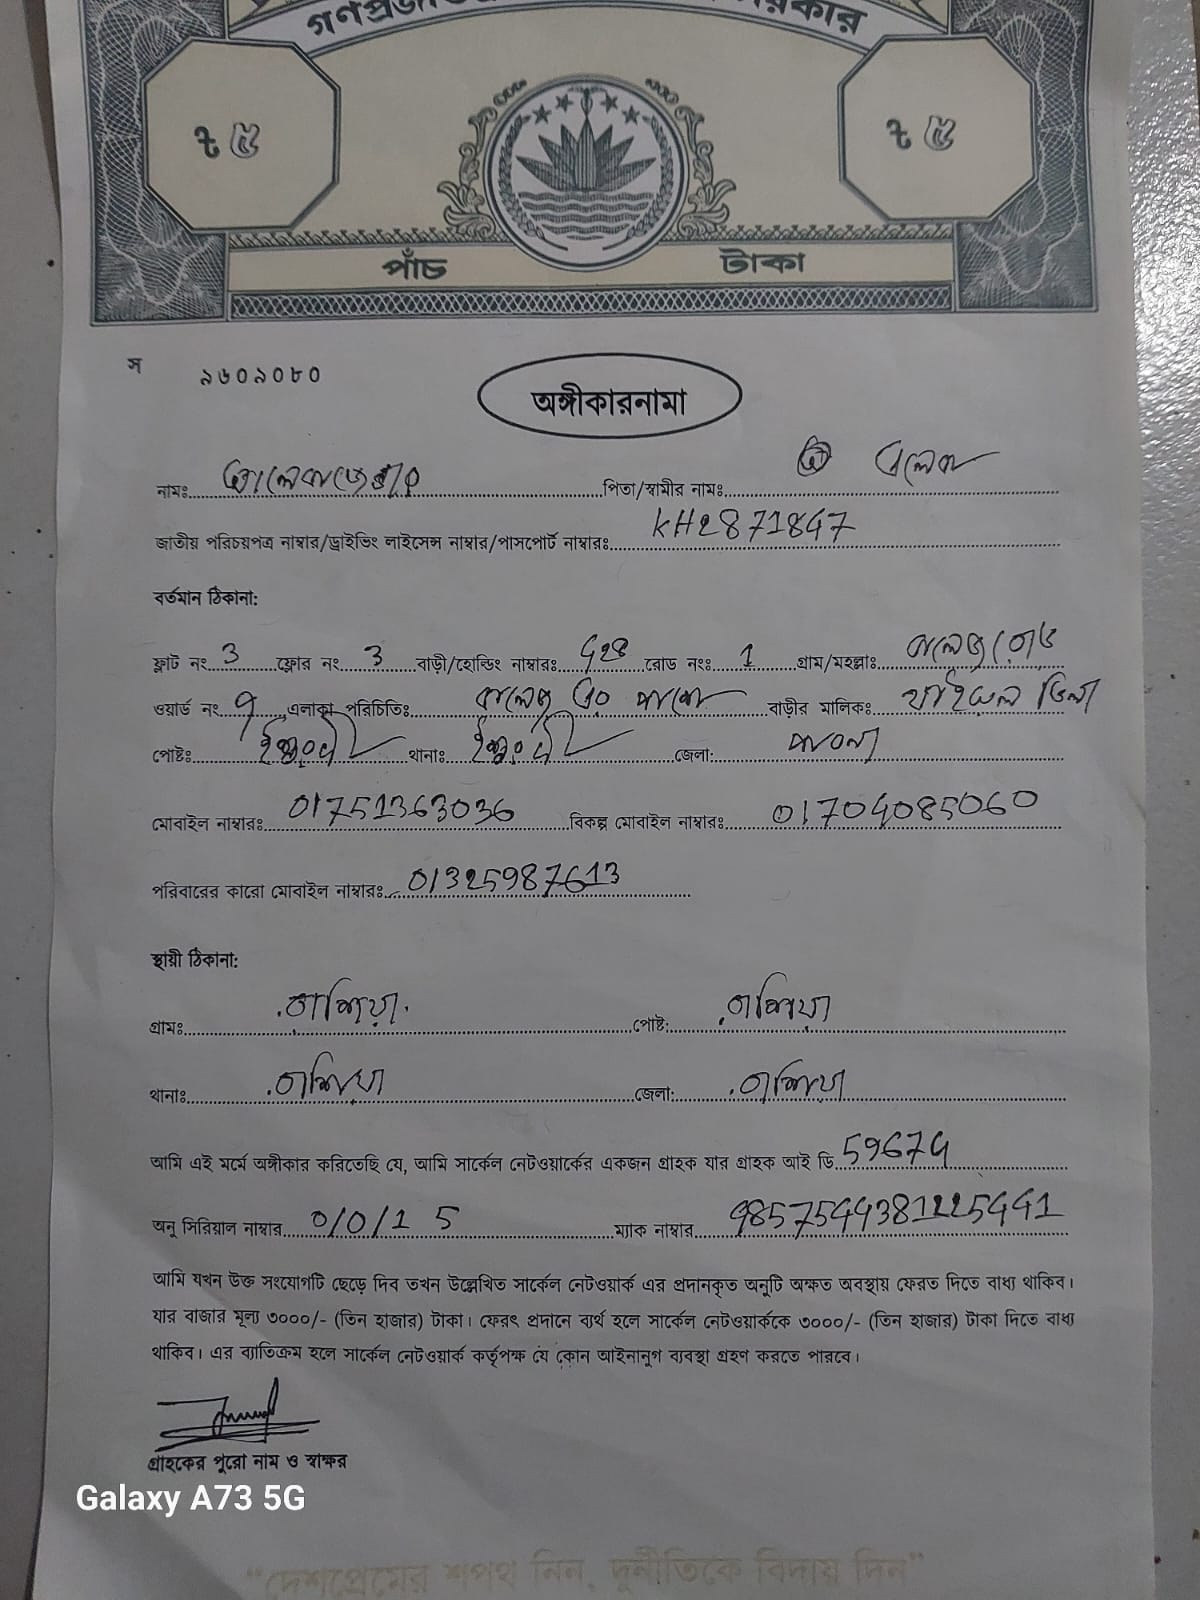 ট ৫ ট ৫
পাঁচ টাকা
স ৯৬০৯০৮০
অঙ্গীকারনামা
নামঃ পিতা/স্বামীর নামঃ
জাতীয় পরিচয়পত্র নাম্বার/ড্রাইভিং লাইসেন্স নাম্বার/পাসপোর্ট নাম্বারঃ KH2871847
বর্তমান ঠিকানা:
ফ্লাট নং 3 ফ্লোর নং 3 বাড়ী/হোল্ডিং নাম্বারঃ রোড নংঃ 1 গ্রাম/মহল্লাঃ কলেজ রোড
ওয়ার্ড নং ৭ এলাকা পরিচিতিঃ কলেজ এর পাশে বাড়ীর মালিকঃ ভিলা
পোষ্টঃ ঈশ্বরদী থানাঃ ঈশ্বরদী জেলা: পাবনা
মোবাইল নাম্বারঃ 01751363036 বিকল্প মোবাইল নাম্বারঃ 01704085060
পরিবারের কারো মোবাইল নাম্বারঃ 01325987613
স্থায়ী ঠিকানা:
গ্রামঃ রাশিয়া পোষ্ট: রাশিয়া
থানাঃ রাশিয়া জেলা: রাশিয়া
আমি এই মর্মে অঙ্গীকার করিতেছি যে, আমি সার্কেল নেটওয়ার্কের একজন গ্রাহক যার গ্রাহক আই ডি 59674
অনু সিরিয়াল নাম্বার 0/0/1 5 ম্যাক নাম্বার
আমি যখন উক্ত সংযোগটি ছেড়ে দিব তখন উল্লেখিত সার্কেল নেটওয়ার্ক এর প্রদানকৃত অনুটি অক্ষত অবস্থায় ফেরত দিতে বাধ্য থাকিব।
যার বাজার মূল্য ৩০০০/- (তিন হাজার) টাকা। ফেরৎ প্রদানে ব্যর্থ হলে সার্কেল নেটওয়ার্ককে ৩০০০/- (তিন হাজার) টাকা দিতে বাধ্য
থাকিব। এর ব্যাতিক্রম হলে সার্কেল নেটওয়ার্ক কর্তৃপক্ষ যে কোন আইনানুগ ব্যবস্থা গ্রহণ করতে পারবে।
গ্রাহকের পুরো নাম ও স্বাক্ষর
Galaxy A73 5G
"দেশপ্রেমের শপথ নিন, দুর্নীতিকে বিদায় দিন"